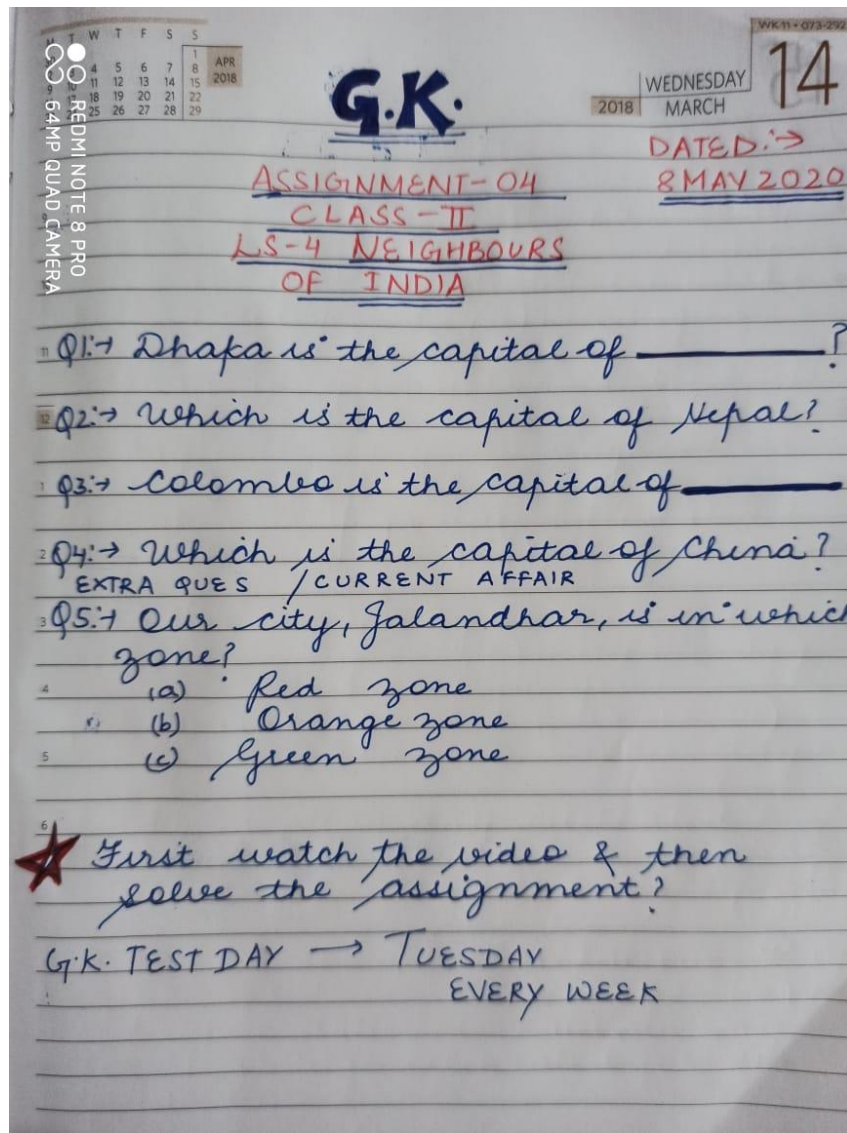 M T W T F S S
1
4 5 6 7 8
9 10 11 12 13 14 15
18 19 20 21 22
25 26 27 28 29
APR
2018
WK 11 • 073-292
14
WEDNESDAY
2018 MARCH
REDMI NOTE 8 PRO
64MP QUAD CAMERA
G.K.
DATED:→
8 MAY 2020
ASSIGNMENT-04
CLASS-II
LS-4 NEIGHBOURS
OF INDIA
11 Q1:→ Dhaka is the capital of ________?
12 Q2:→ Which is the capital of Nepal?
1 Q3:→ Colombo is the capital of ________
2 Q4:→ Which is the capital of China?
EXTRA QUES / CURRENT AFFAIR
3 Q5:→ Our city, Jalandhar, is in which
zone?
4 (a) Red zone
(b) Orange zone
5 (c) Green zone
6
First watch the video & then
solve the assignment?
G.K. TEST DAY → TUESDAY
EVERY WEEK